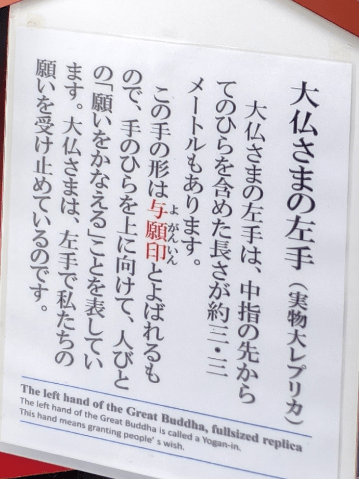 大仏さまの左手（実物大レプリカ）
大仏さまの左手は、中指の先から
てのひらを含めた長さが約三・三
メートルもあります。
この手の形は与願印とよばれるも
よがんいん
ので、手のひらを上に向けて、人びと
の「願いをかなえる」ことを表してい
ます。大仏さまは、左手で私たちの
願いを受け止めているのです。
The left hand of the Great Buddha, fullsized replica
The left hand of the Great Buddha is called a Yogan-in.
This hand means granting people's wish.